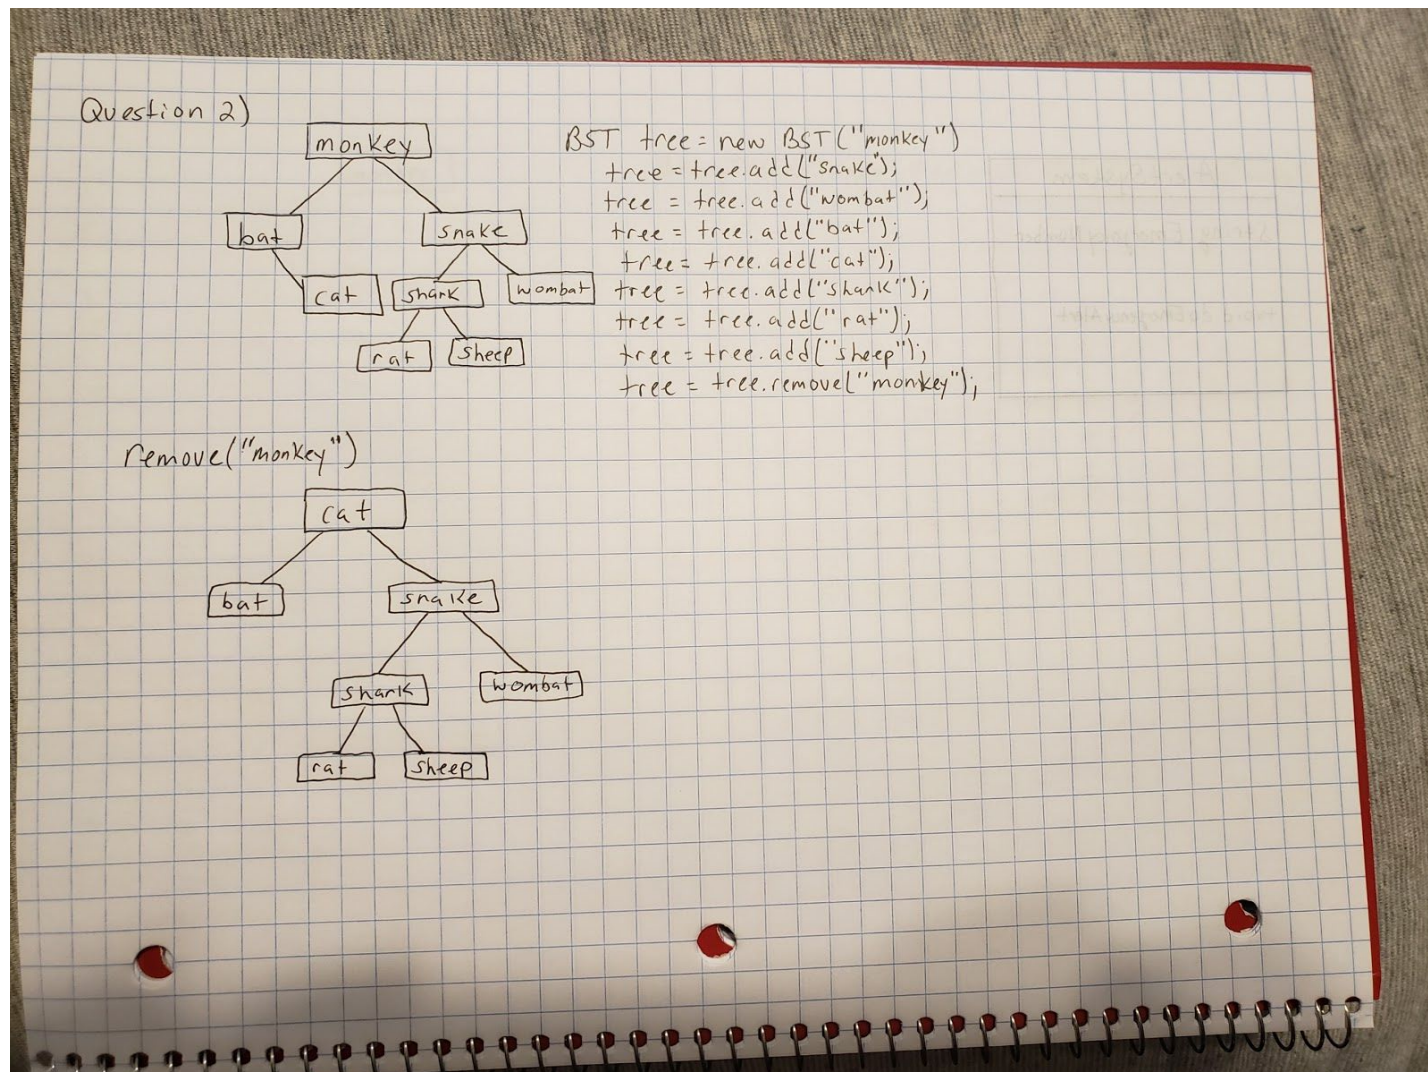 Question 2)
monkey
bat snake
cat shark wombat
rat sheep
BST tree = new BST("monkey")
tree = tree.add("snake");
tree = tree.add("wombat");
tree = tree.add("bat");
tree = tree.add("cat");
tree = tree.add("shark");
tree = tree.add("rat");
tree = tree.add("sheep");
tree = tree.remove("monkey");
remove("monkey")
cat
bat snake
shark wombat
rat sheep